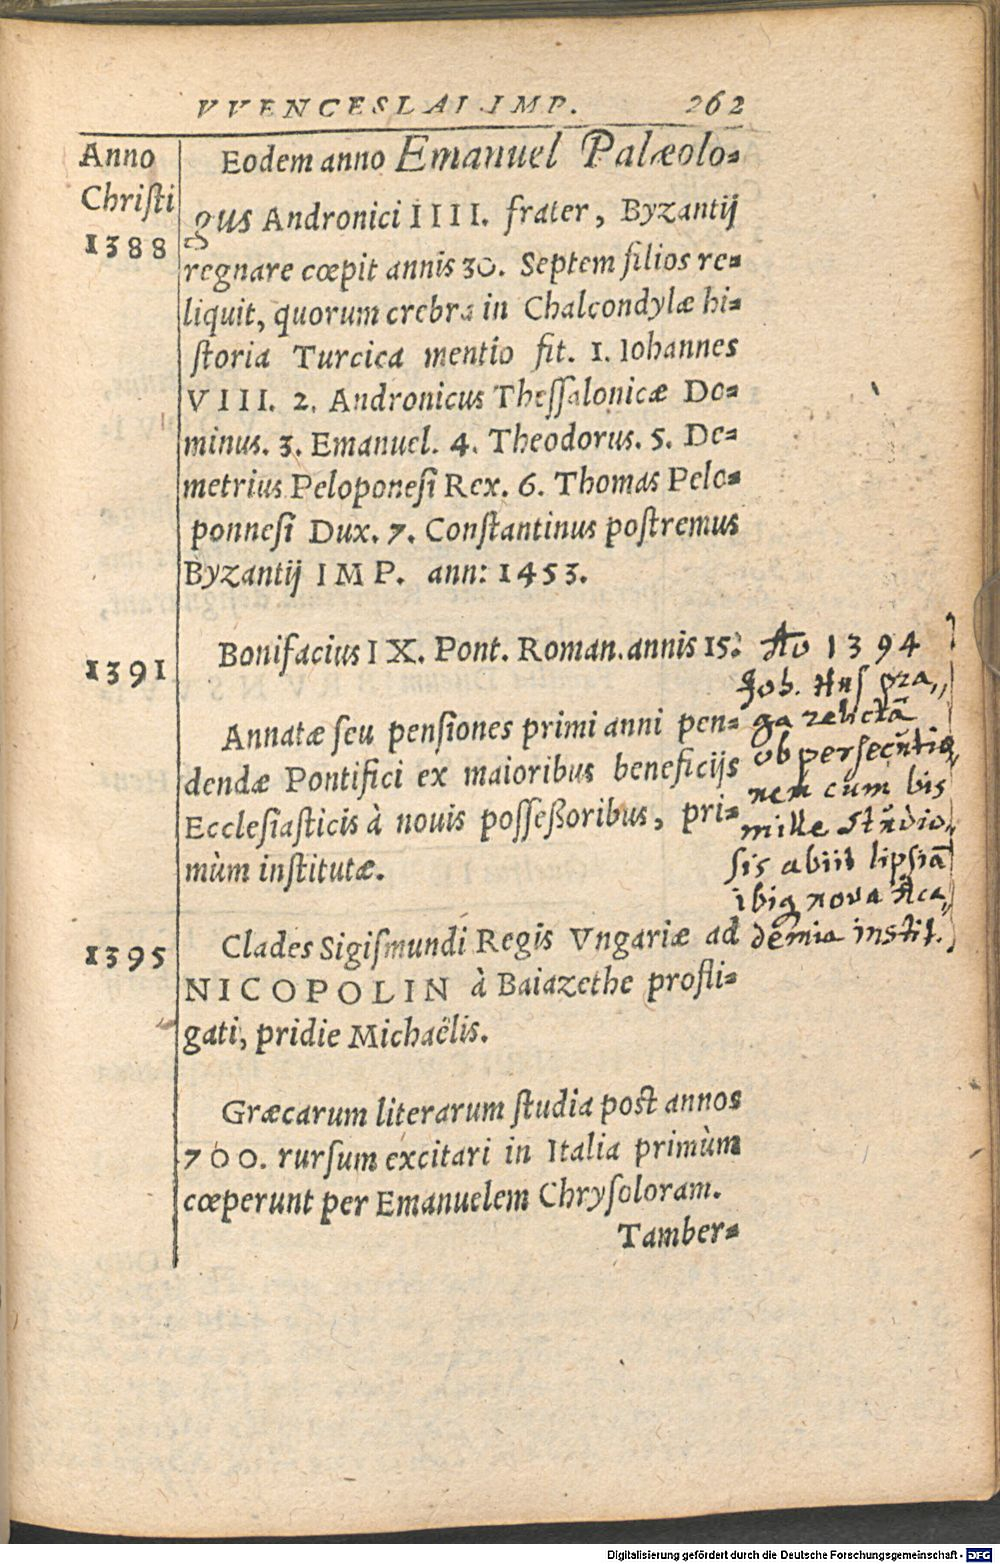 VVENCESLAI IMP. 262
Anno
Christi
1388
Eodem anno Emanuel Palæolo-
gus Andronici IIII. frater, Byzantij
regnare cœpit annis 30. Septem filios re-
liquit, quorum crebra in Chalcondylæ hi-
ſtoria Turcica mentio fit. 1. Iohannes
VIII. 2. Andronicus Theſſalonicæ Do-
minus. 3. Emanuel. 4. Theodorus. 5. De-
metrius Peloponeſi Rex. 6. Thomas Pelo-
ponneſi Dux. 7. Conſtantinus poſtremus
Byzantij IMP. ann: 1453.
1391
Bonifacius IX. Pont. Roman. annis 15.
Annatæ ſeu penſiones primi anni pen-
dendæ Pontifici ex maioribus beneficijs
Eccleſiaſticis à nouis poſſeßoribus, pri-
mùm inſtitutæ.
Ao 1394
Joh. Hus pra„
ga relictā
ob persecutio„
nem cum bis
mille Studio„
sis abiit lipsiā
ibiq nova Aca„
demia instit.
1395
Clades Sigiſmundi Regis Vngariæ ad
NICOPOLIN à Baiazethe profli-
gati, pridie Michaëlis.
Græcarum literarum ſtudia post annos
700. rurſum excitari in Italia primùm
cœperunt per Emanuelem Chryſoloram.
Tamber-
Digitalisierung gefördert durch die Deutsche Forschungsgemeinschaft - DFG